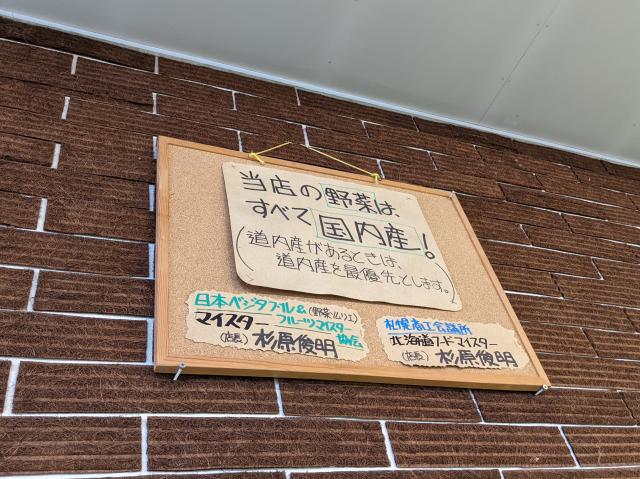 当店の野菜は、
すべて国内産!
(道内産があるときは、
道内産を最優先とします。)
日本ベジタブル&(野菜ソムリエ)
フルーツマイスター協会
マイスター
(店長)杉原俊明
札幌商工会議所
北海道フードマイスター
(店長)杉原俊明